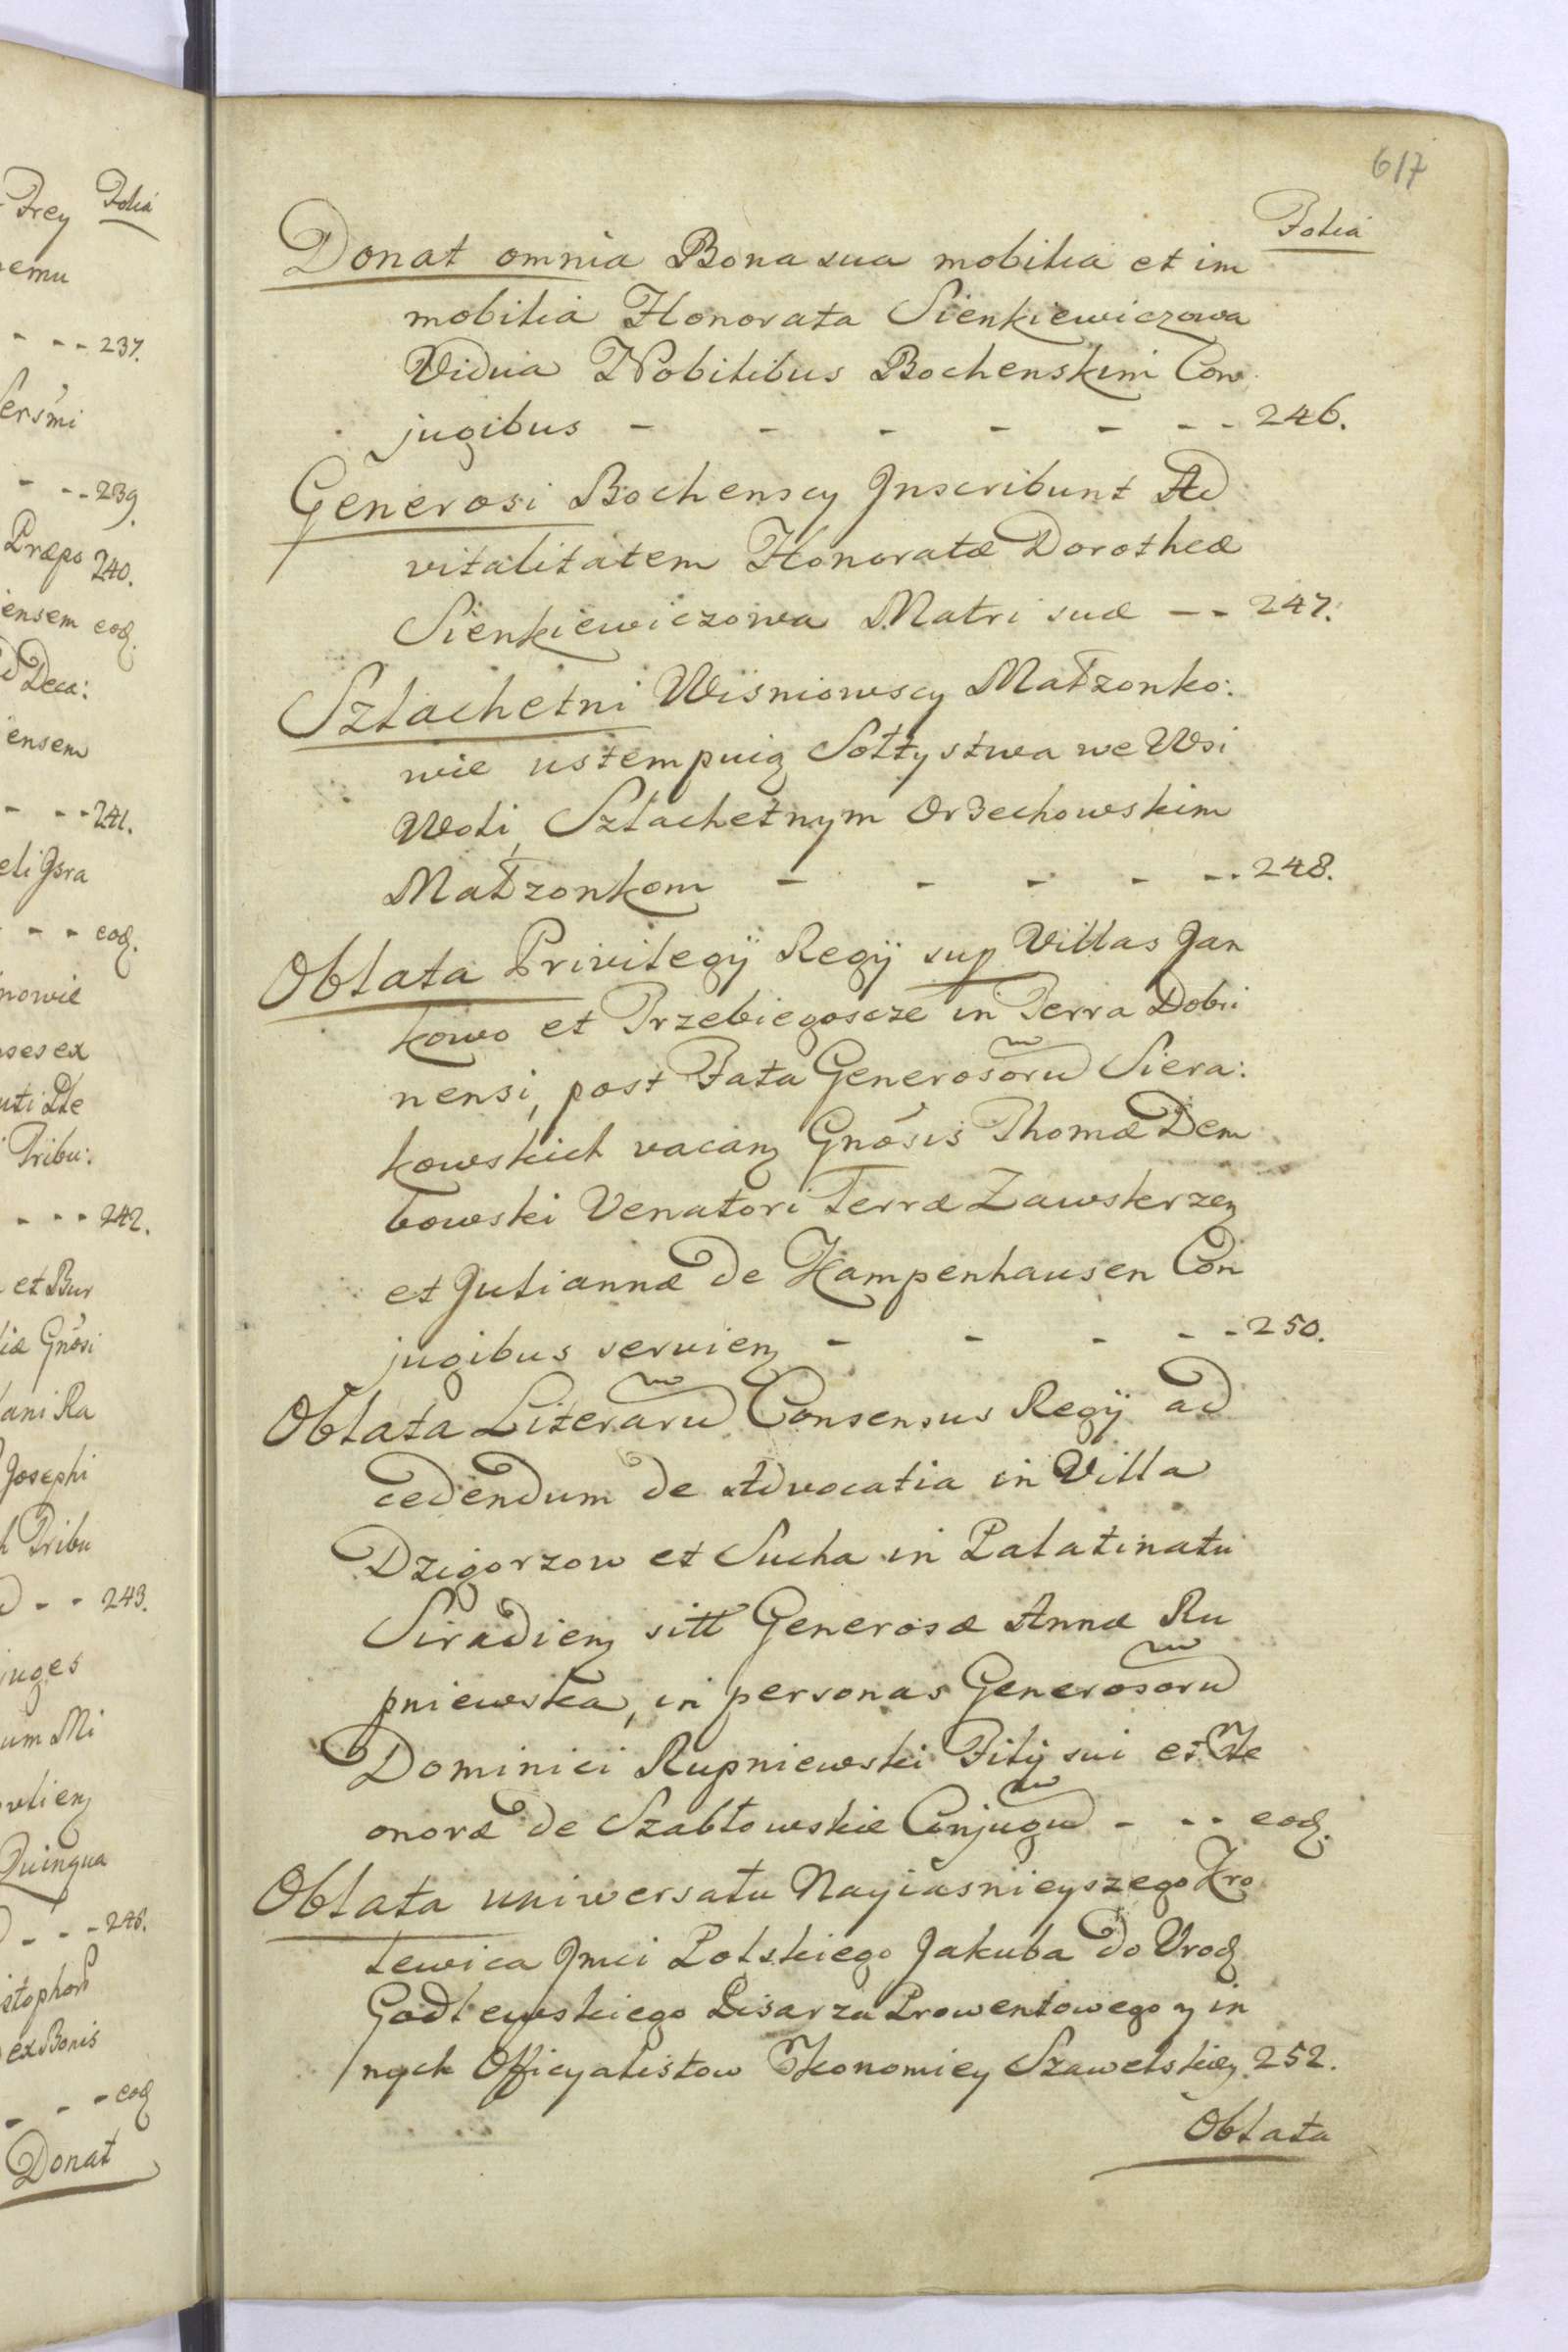 Frey Folia
emu
- - - 237.
Sersmi
- - - 239.
Præpo 240.
iensem eod.
Deca:
iensem
- - - 241.
eli Jsra
- - - eod.
nowie
sesex
uti Dte
Tribu:
- - - 242.
et Bur
iæ Gnósi
ani Ra
Josephi
h Tribu
- - 243.
juges
um Mi
vlien
Quingua
- - - 246.
istophori
ex Bonis
- - - eod
Donat
617
Folia
Donat omnia Bona sua mobilia et im
mobilia Honorata Sienkiewiczowa
Vidua Nobilibus Bochenskim Con
jugibus - - - - - - - 246.
Generosi Bochenscy Jnscribunt Ad
vitalitatem Honoratæ Dorotheæ
Sienkiewiczowa Matri suæ - - 247.
Szlachetni Wisniowscy Małzonko:
wie ustempuią Sołtystwa we Wsi
Woli, Szlachetnym Orzechowskim
Małzonkom - - - - - - 248.
Oblata Privilegij Regij sup Villas Jan
kowo et Przebiegoscze in Terra Dobri
nensi, post Fata Generosoru Siera:
kowskich vacan Gnósis Thomæ Dem
bowski Venatori Terræ Zawskrzen
et Juliannæ de Kampenhausen Con
jugibus servien - - - - - 250.
Oblata Literaru Consensus Regij ad
cedendum de Advocatia in Villa
Dzigorzow et Sucha in Palatinatu
Siradien sitt Generosæ Annæ Ru
pniewska, in personas Generosoru
Dominici Rupniewski Filij sui et Ele
onoræ de Szabłowskie Conjugu - - - eod.
Oblata uniwersału Nayiasnieyszego Kro
lewica Jmci Polskiego Jakuba do Urod
Godlewskiego Pisarza Prowentowego y in
nych Officyalistow Ekonomiey Szawelskiey 252.
Oblata